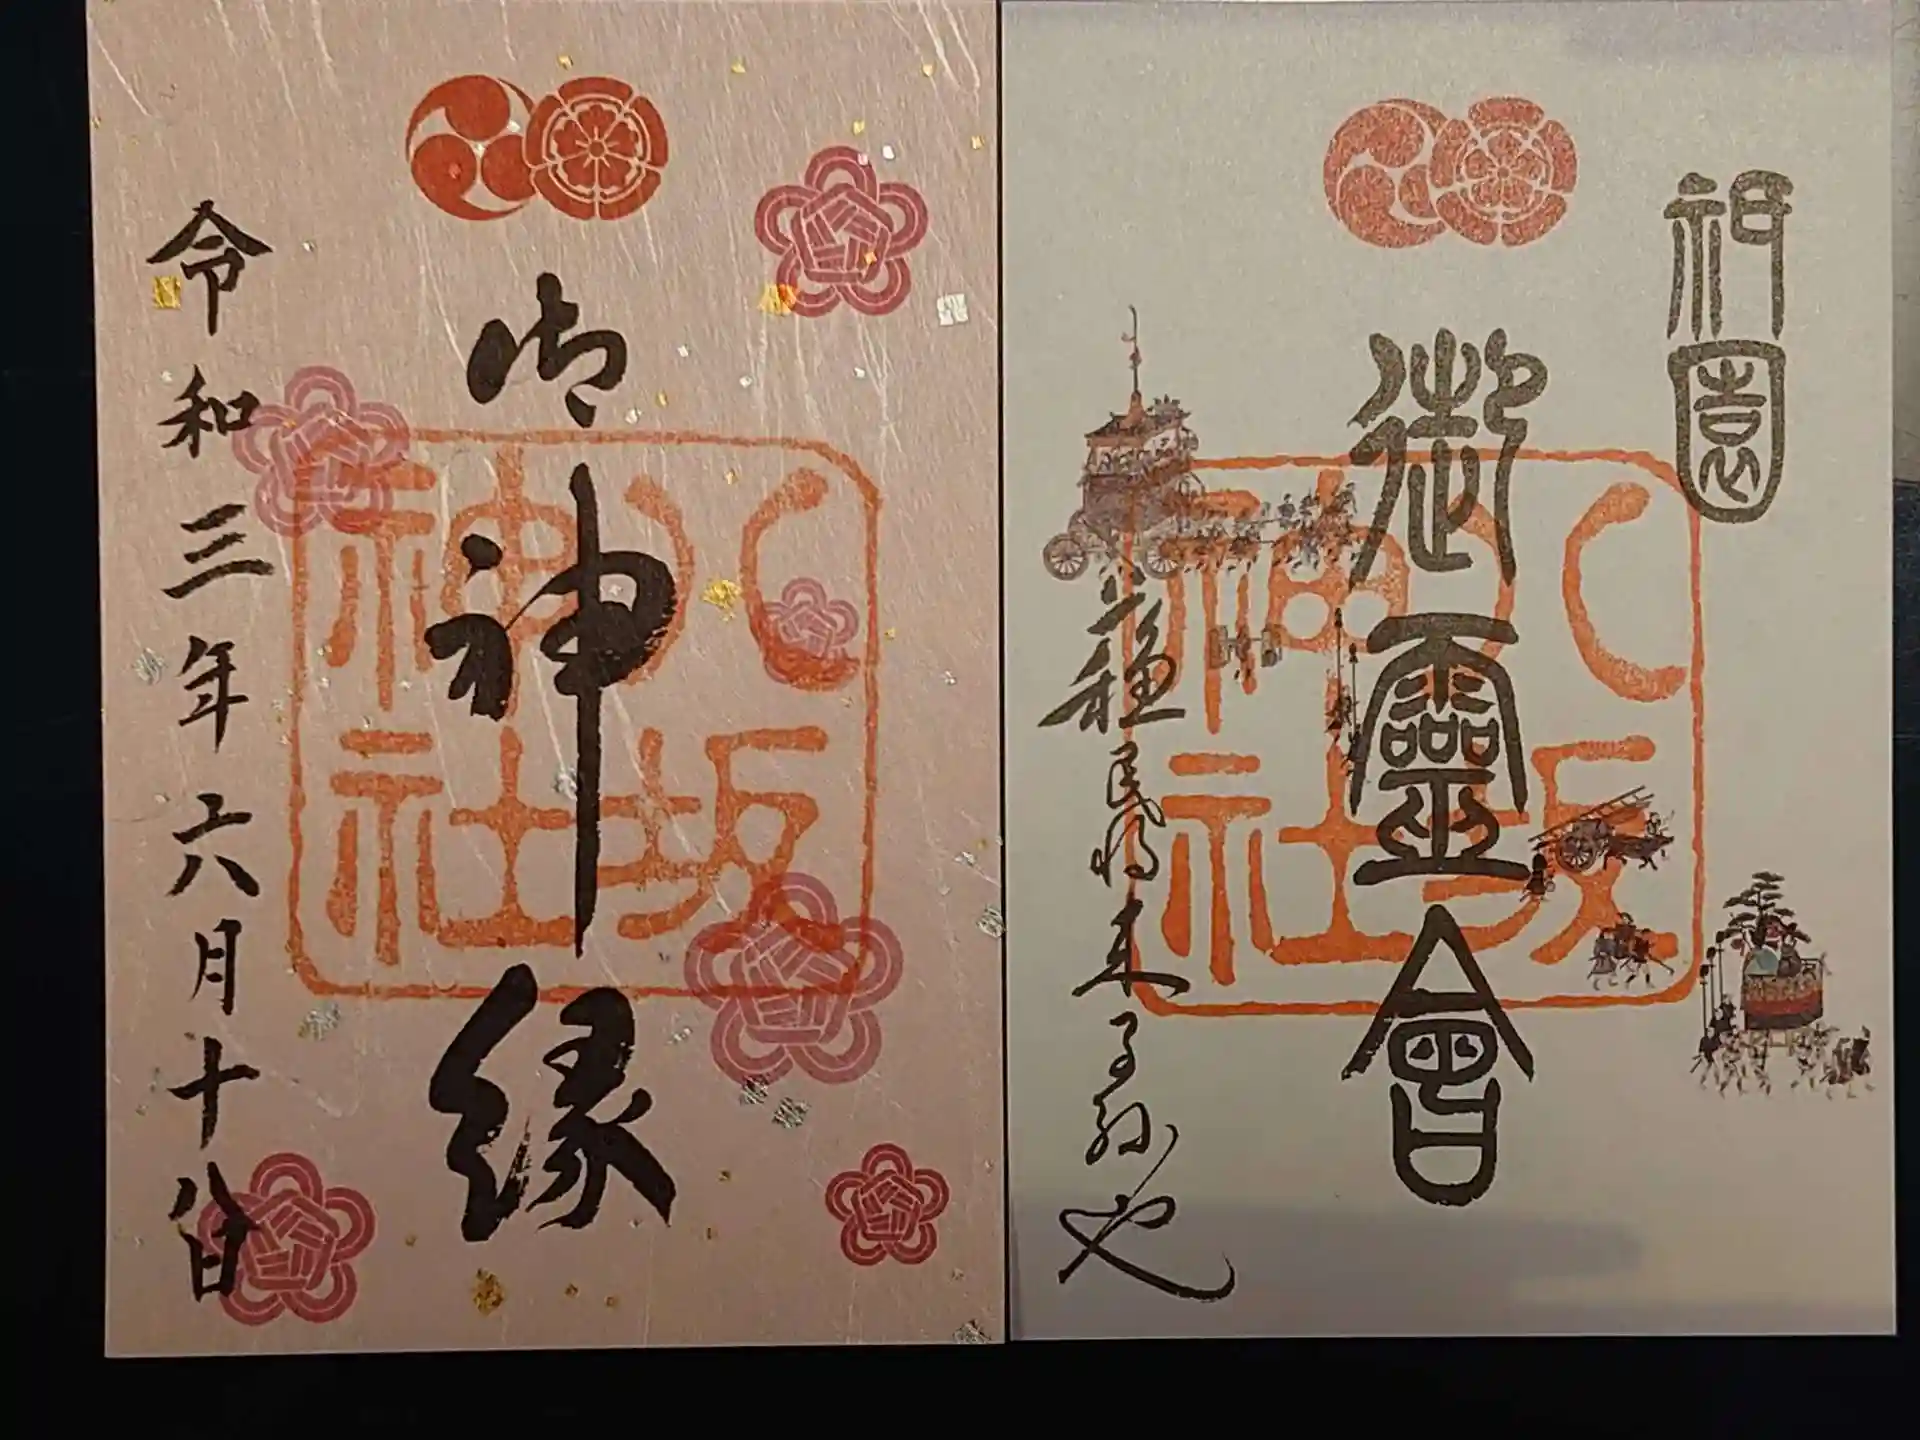 御神縁
八坂
神社
令和三年六月十八日
祇園
御靈會
八坂
神社
蘓民将来子孫也